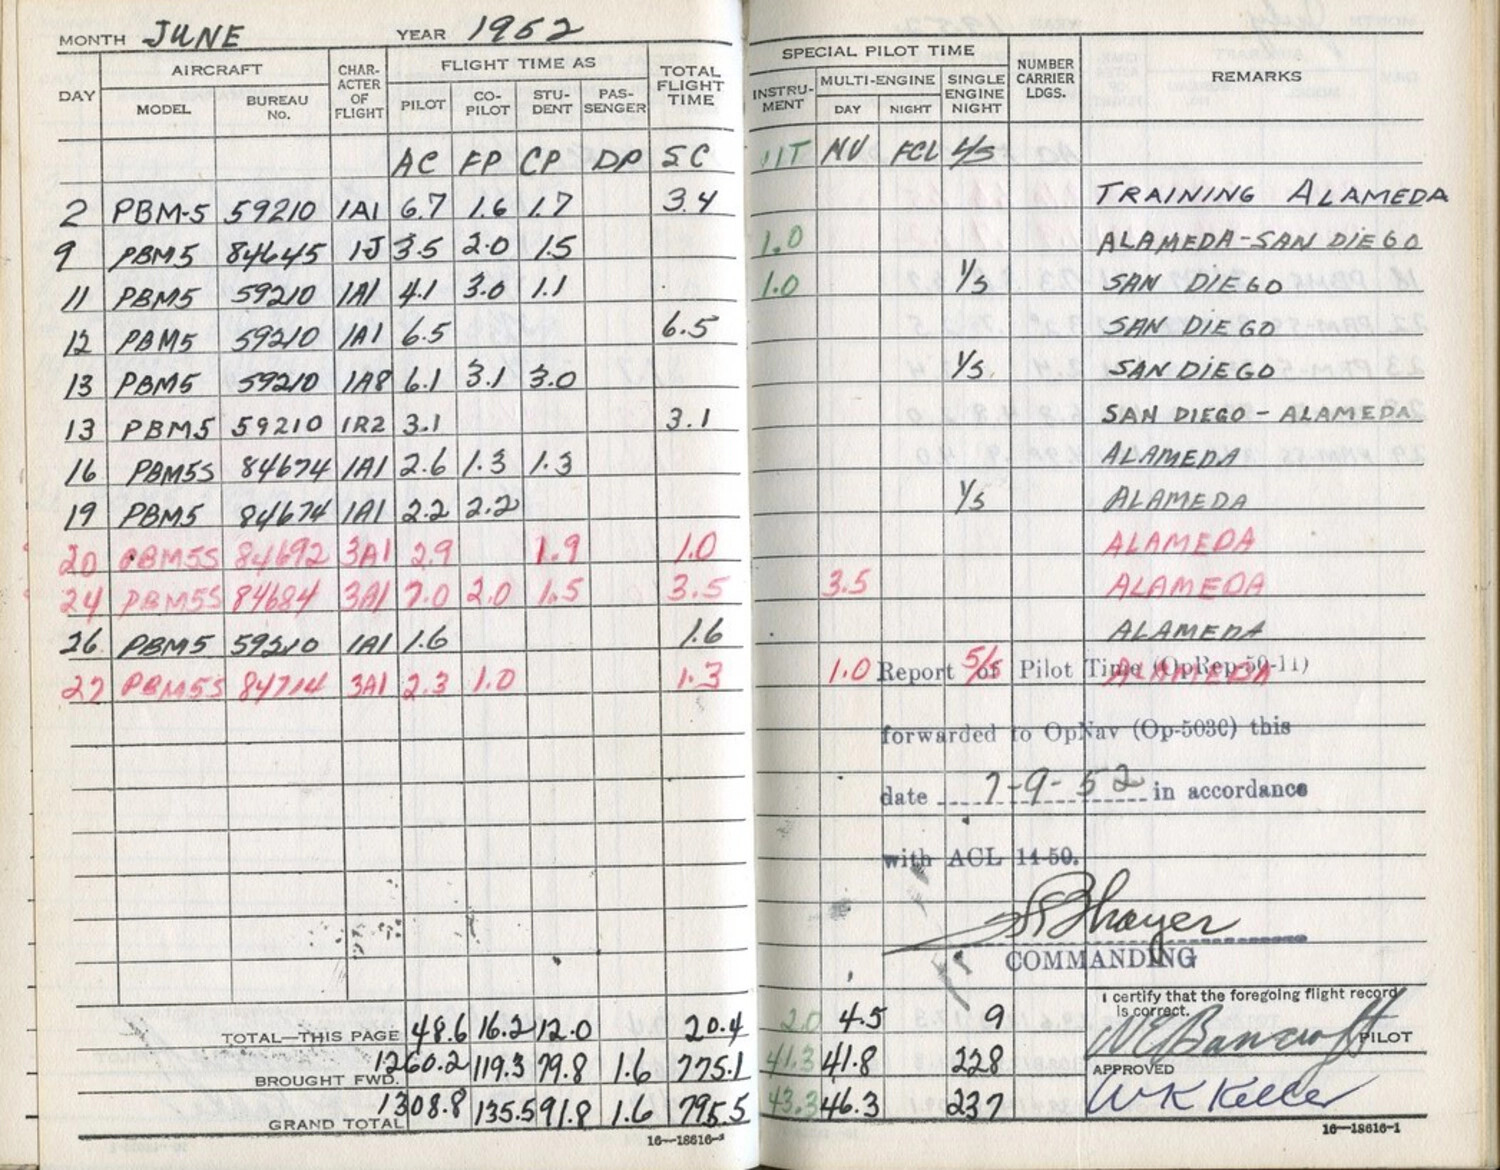 MONTH JUNE YEAR 1952
DAY AIRCRAFT MODEL BUREAU NO. CHARACTER OF FLIGHT FLIGHT TIME AS PILOT CO-PILOT STU-DENT PAS-SENGER TOTAL FLIGHT TIME
AC FP CP DP SC
2 PBM-5 59210 1A1 6.7 1.6 1.7 3.4
9 PBM5 84645 1J 3.5 2.0 1.5
11 PBM5 59210 1A1 4.1 3.0 1.1
12 PBM5 59210 1A1 6.5 6.5
13 PBM5 59210 1A8 6.1 3.1 3.0
13 PBM5 59210 1R2 3.1 3.1
16 PBM5S 84674 1A1 2.6 1.3 1.3
19 PBM5 84674 1A1 2.2 2.2
20 PBM5S 84692 3A1 2.9 1.9 1.0
24 PBM5S 84684 3A1 7.0 2.0 1.5 3.5
26 PBM5 59210 1A1 1.6 1.6
27 PBM5S 84714 3A1 2.3 1.0 1.3
TOTAL—THIS PAGE 48.6 16.2 12.0 20.4
BROUGHT FWD. 1260.2 119.3 79.8 1.6 775.1
GRAND TOTAL 1308.8 135.5 91.8 1.6 795.5
16—18616-1
SPECIAL PILOT TIME INSTRU-MENT MULTI-ENGINE DAY NIGHT SINGLE ENGINE NIGHT NUMBER CARRIER LDGS. REMARKS
NV FCL L/S
TRAINING ALAMEDA
1.0 ALAMEDA-SAN DIEGO
1.0 1/S SAN DIEGO
SAN DIEGO
1/S SAN DIEGO
SAN DIEGO - ALAMEDA
ALAMEDA
1/S ALAMEDA
ALAMEDA
3.5 ALAMEDA
ALAMEDA
1.0 5/S ALAMEDA
Report of Pilot Time (OpRep-50-11)
forwarded to OpNav (Op-503C) this
date 7-9-52 in accordance
with ACL 14-50.
Thayer
COMMANDING
I certify that the foregoing flight record is correct.
2.0 4.5 9 Bancroft PILOT
41.3 41.8 228 APPROVED
43.3 46.3 237 WK Keller
16—18616-1